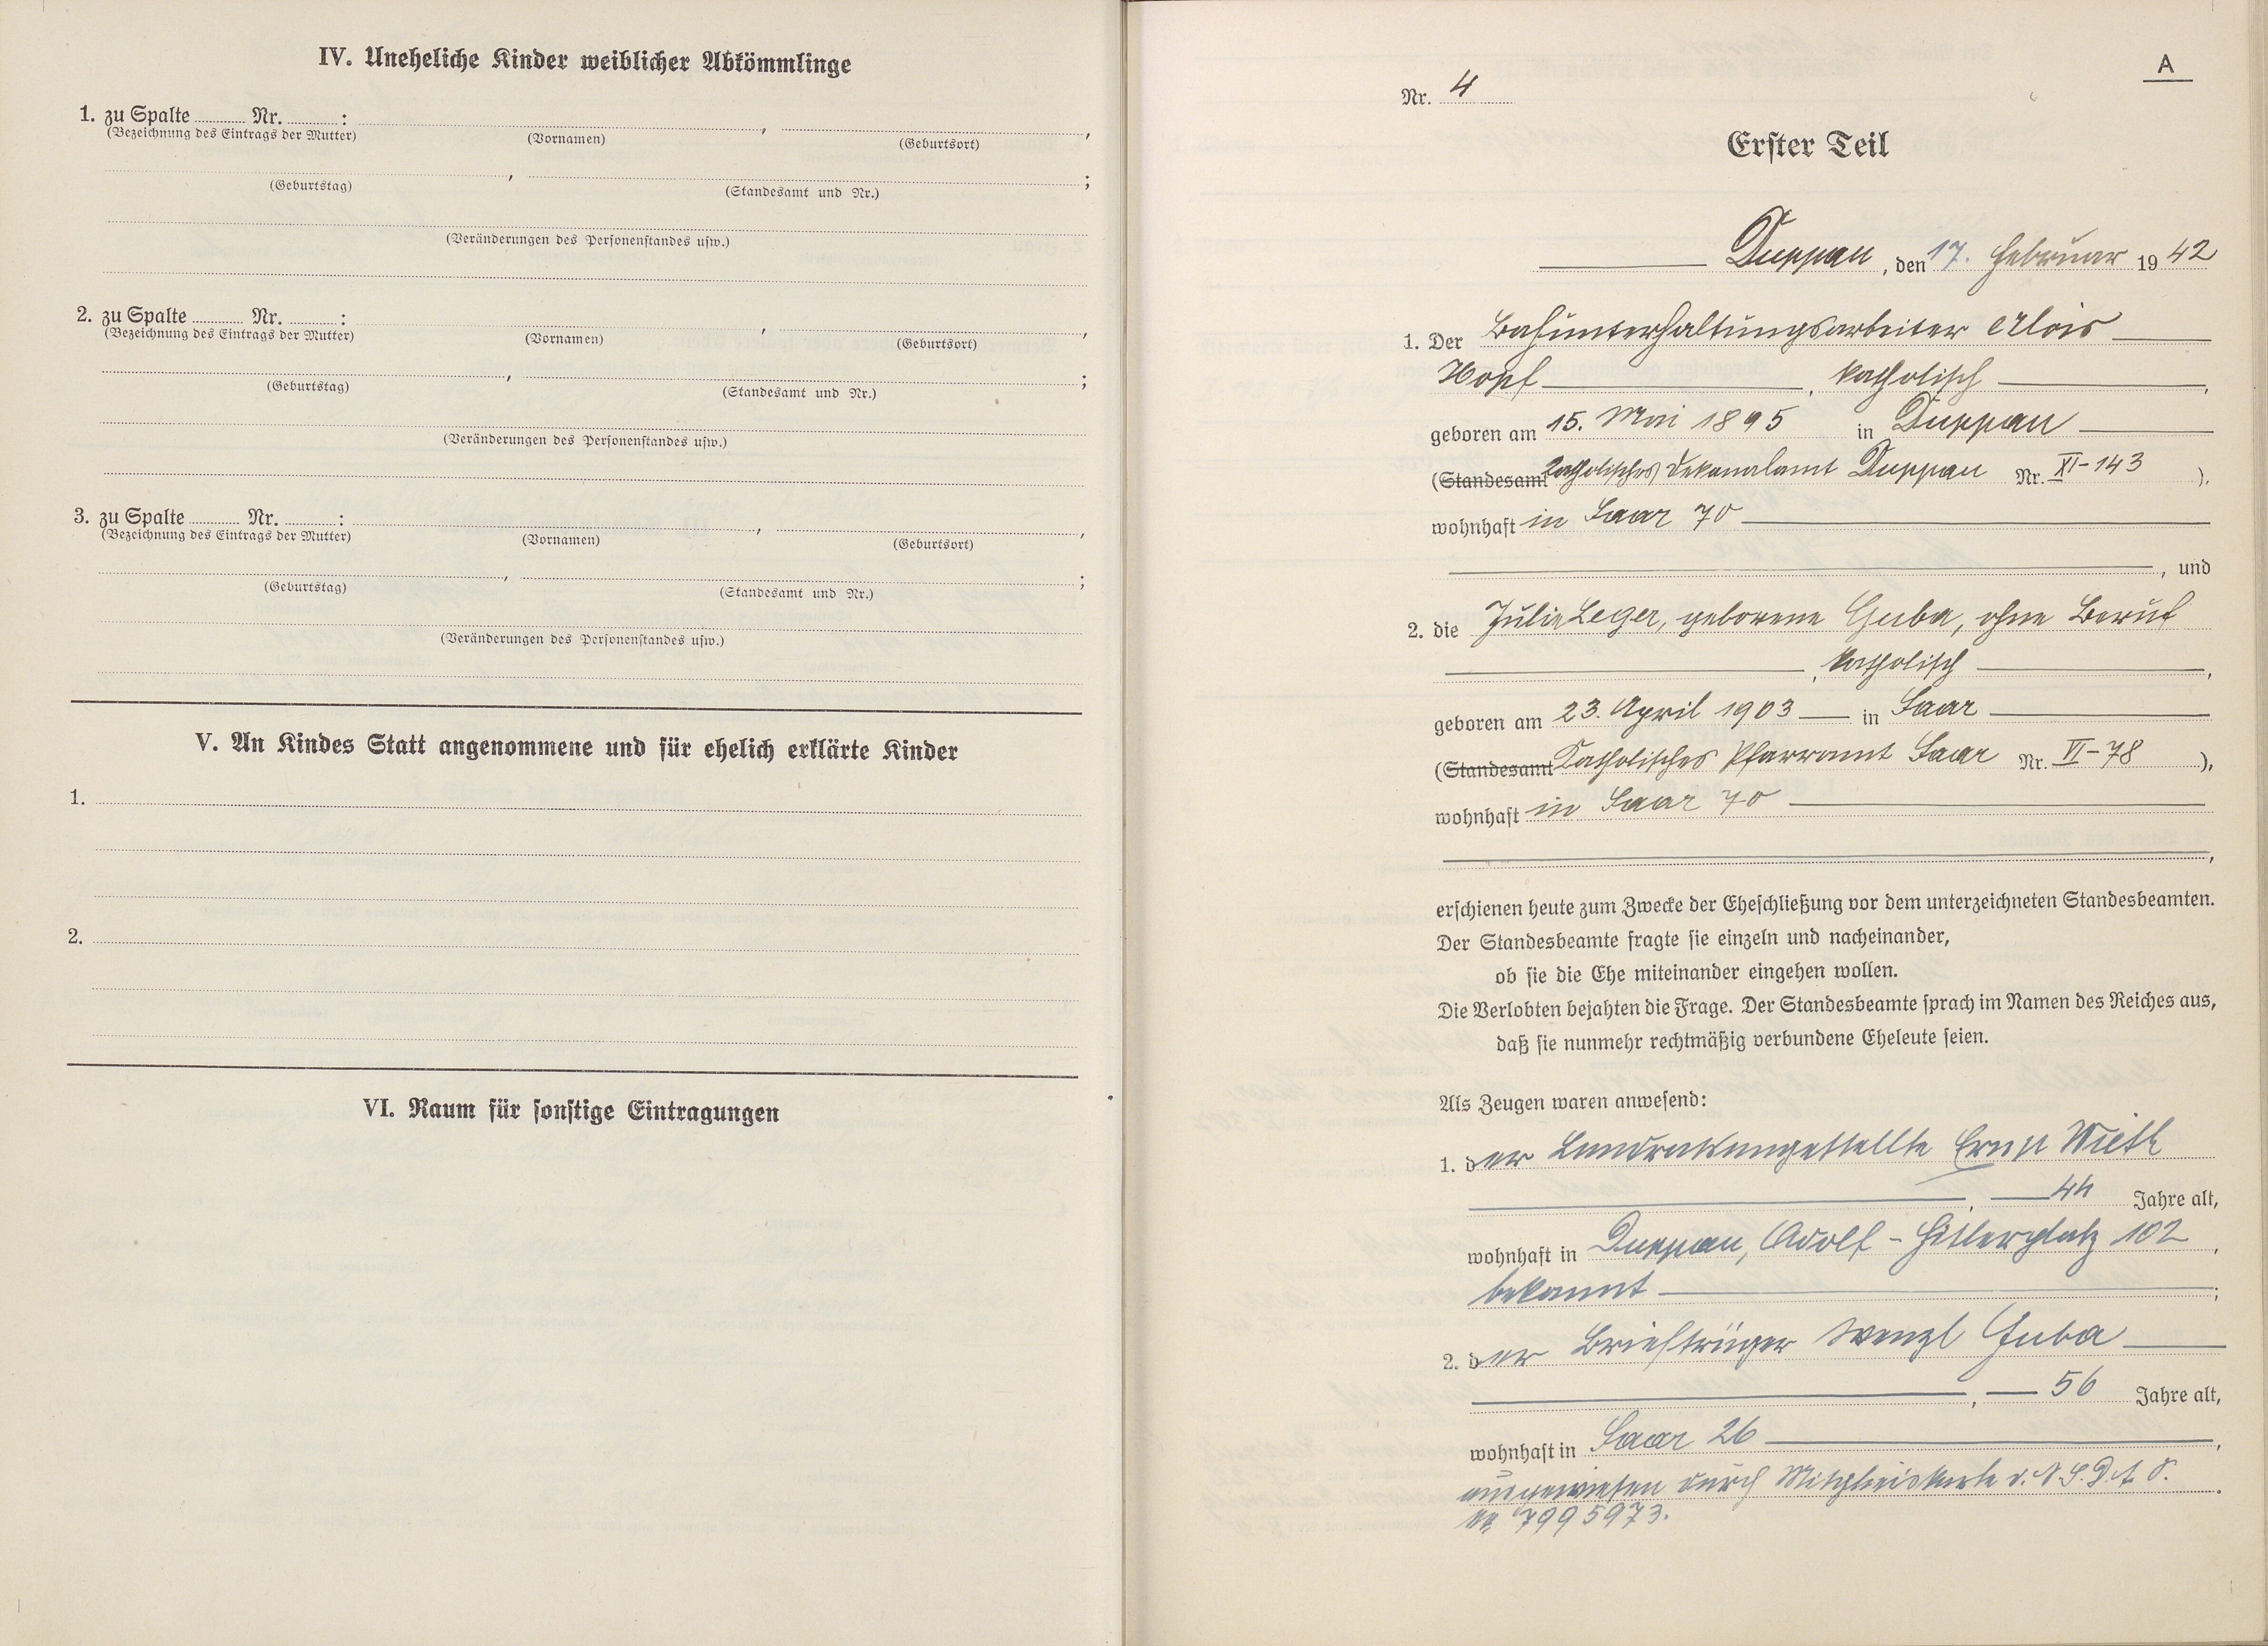 IV. Uneheliche Kinder weiblicher Abkömmlinge
1. zu Spalte ........ Nr. ........ :
(Bezeichnung des Eintrags der Mutter) (Vornamen) , (Geburtsort) ,
(Geburtstag) , (Standesamt und Nr.) ;
(Veränderungen des Personenstandes usw.)
2. zu Spalte ........ Nr. ........ :
(Bezeichnung des Eintrags der Mutter) (Vornamen) , (Geburtsort) ,
(Geburtstag) , (Standesamt und Nr.) ;
(Veränderungen des Personenstandes usw.)
3. zu Spalte ........ Nr. ........ :
(Bezeichnung des Eintrags der Mutter) (Vornamen) , (Geburtsort) ,
(Geburtstag) , (Standesamt und Nr.) ;
(Veränderungen des Personenstandes usw.)
V. An Kindes Statt angenommene und für ehelich erklärte Kinder
1.
2.
VI. Raum für sonstige Eintragungen
A
Nr. 4
Erster Teil
Duppau, den 17. Februar 1942
1. Der Bahnunterhaltungsarbeiter Alois
Hopf, katholisch,
geboren am 15. Mai 1895 in Duppau
(Standesamt Katholisches Dekanalamt Duppau Nr. XI-143 ),
wohnhaft in Saar 70
, und
2. die Julie Leger, geborene Guba, ohne Beruf
, katholisch,
geboren am 23. April 1903 in Saar
(Standesamt Katholisches Pfarramt Saar Nr. VI-78 ),
wohnhaft in Saar 70
,
erschienen heute zum Zwecke der Eheschließung vor dem unterzeichneten Standesbeamten.
Der Standesbeamte fragte sie einzeln und nacheinander,
ob sie die Ehe miteinander eingehen wollen.
Die Verlobten bejahten die Frage. Der Standesbeamte sprach im Namen des Reiches aus,
daß sie nunmehr rechtmäßig verbundene Eheleute seien.
Als Zeugen waren anwesend:
1. der Landratsangestellte Ernst
, 44 Jahre alt,
wohnhaft in Duppau, Adolf-Hitlerplatz 102,
bekannt ;
2. der Briefträger Wenzl Guba
, 56 Jahre alt,
wohnhaft in Saar 26,
ausgewiesen durch Mitgliedskarte d. N.S.D.A.P.
Nr. 7995973.